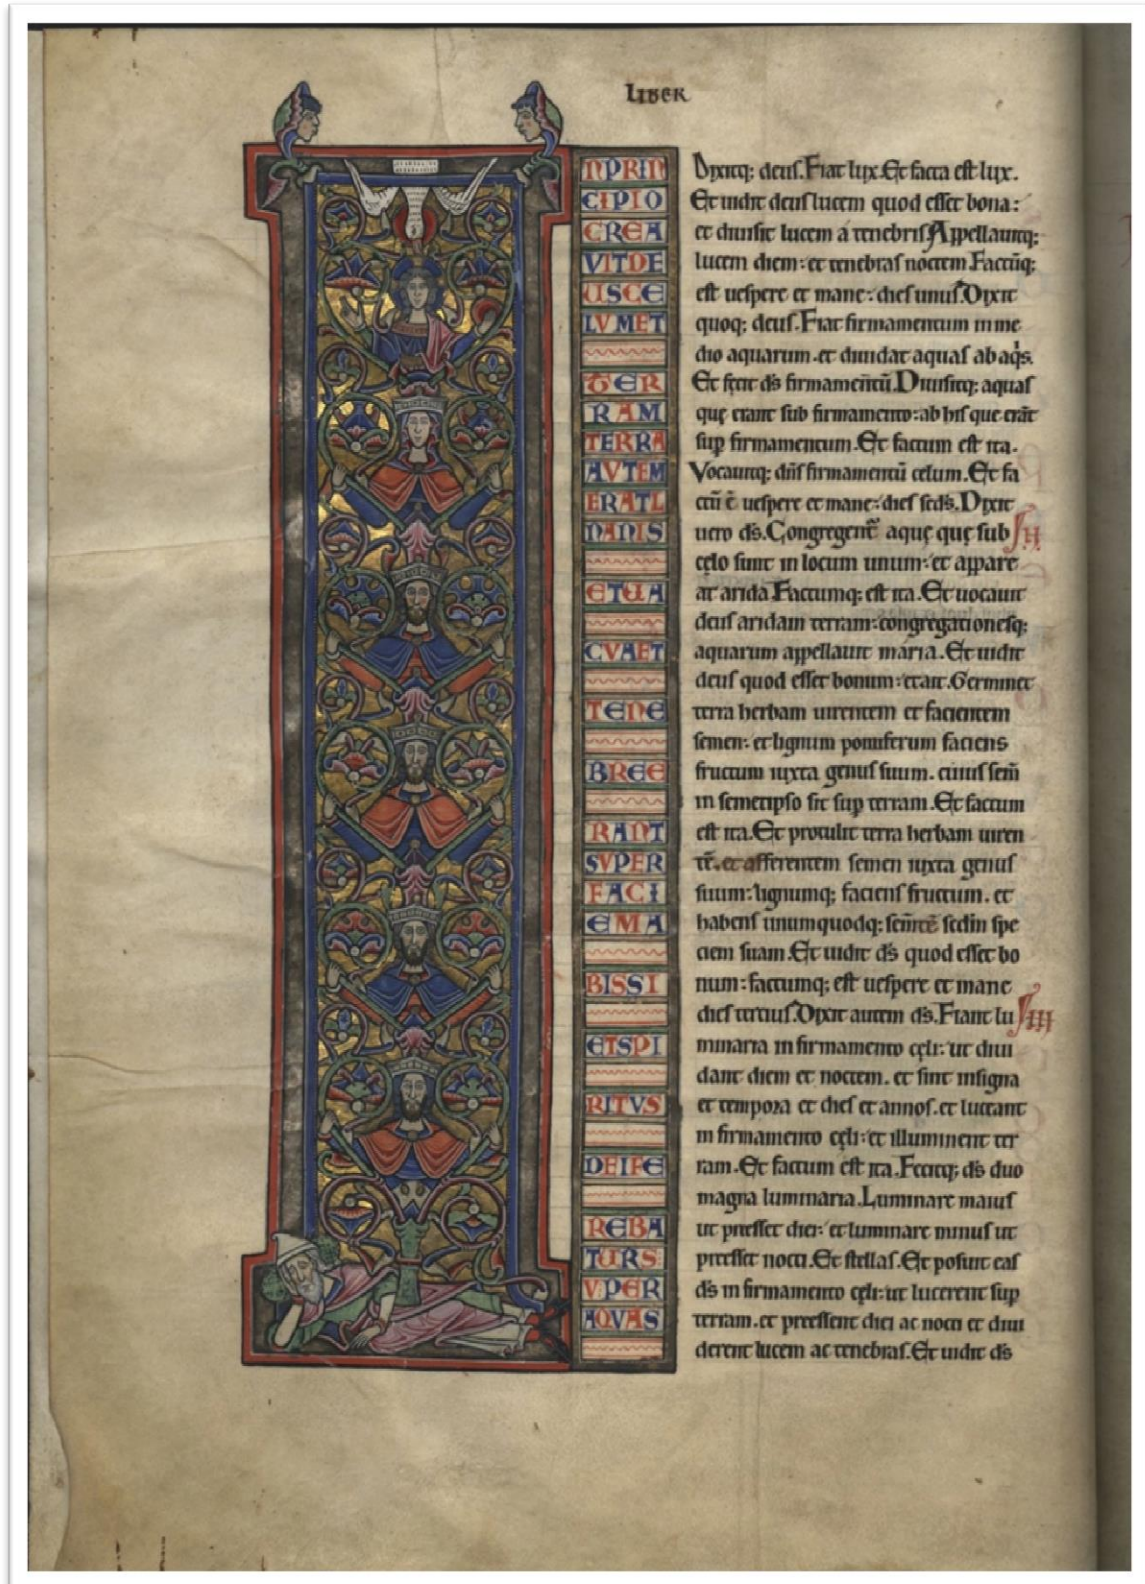 LIBER
NPRIN
CIPIO
CREA
VITDE
USCE
LVMET
TER
RAM
TERRA
AVTEM
ERATI
NANIS
ETUA
CVAET
TENE
BREE
RANT
SVPER
FACI
EMA
BISSI
ETSPI
RITVS
DEIFE
REBA
TURS
VPER
AQVAS
Dixitq; deus. Fiat lux. Et facta est lux.
Et uidit deus lucem quod esset bona:
et diuisit lucem á tenebris Appellauitq;
lucem diem: et tenebras noctem. Factūq;
est uespere et mane: dies unus. Dixit
quoq; deus. Fiat firmamentum in me
dio aquarum. et diuidat aquas ab aq̇s.
Et fecit d̄s firmamentū. Diuisitq; aquas
quę erant sub firmamento: ab his que erāt
sup firmamentum. Et factum est ita.
Vocauitq; dn̄s firmamentū celum. Et fa
ctū ē uespere et mane: dies sc̄ds. Dixit
uero d̄s. Congregent̄ aquę quę sub
cęlo sunt in locum unum: et appare
at arida Factumq; est ita. Et uocauit
deus aridam terram: congregationesq;
aquarum appellauit maria. Et uidit
deus quod esset bonum: et ait. Germinet
terra herbam uirentem et facientem
semen: et lignum pomiferum faciens
fructum iuxta genus suum. cuius sem̄
in semetipso sit sup terram. Et factum
est ita. Et protulit terra herbam uiren
tē. et afferentem semen iuxta genus
suum: lignumq; faciens fructum. et
habens unumquodq; sem̄tē scd̄m spe
ciem suam. Et uidit d̄s quod esset bo
num: factumq; est uespere et mane
dies tertius. Dixit autem d̄s. Fiant lu
minaria in firmamento cęli: ut diui
dant diem et noctem. et sint insigna
et tempora et dies et annos. et luceant
in firmamento cęli: et illuminent ter
ram. Et factum est ita. Fecitq; d̄s duo
magna luminaria. Luminare maius
ut preesset diei: et luminare minus ut
preesset nocti. Et stellas. Et posuit eas
d̄s in firmamento cęli: ut lucerent sup
terram. et preessent diei ac nocti et diui
derent lucem ac tenebras. Et uidit d̄s